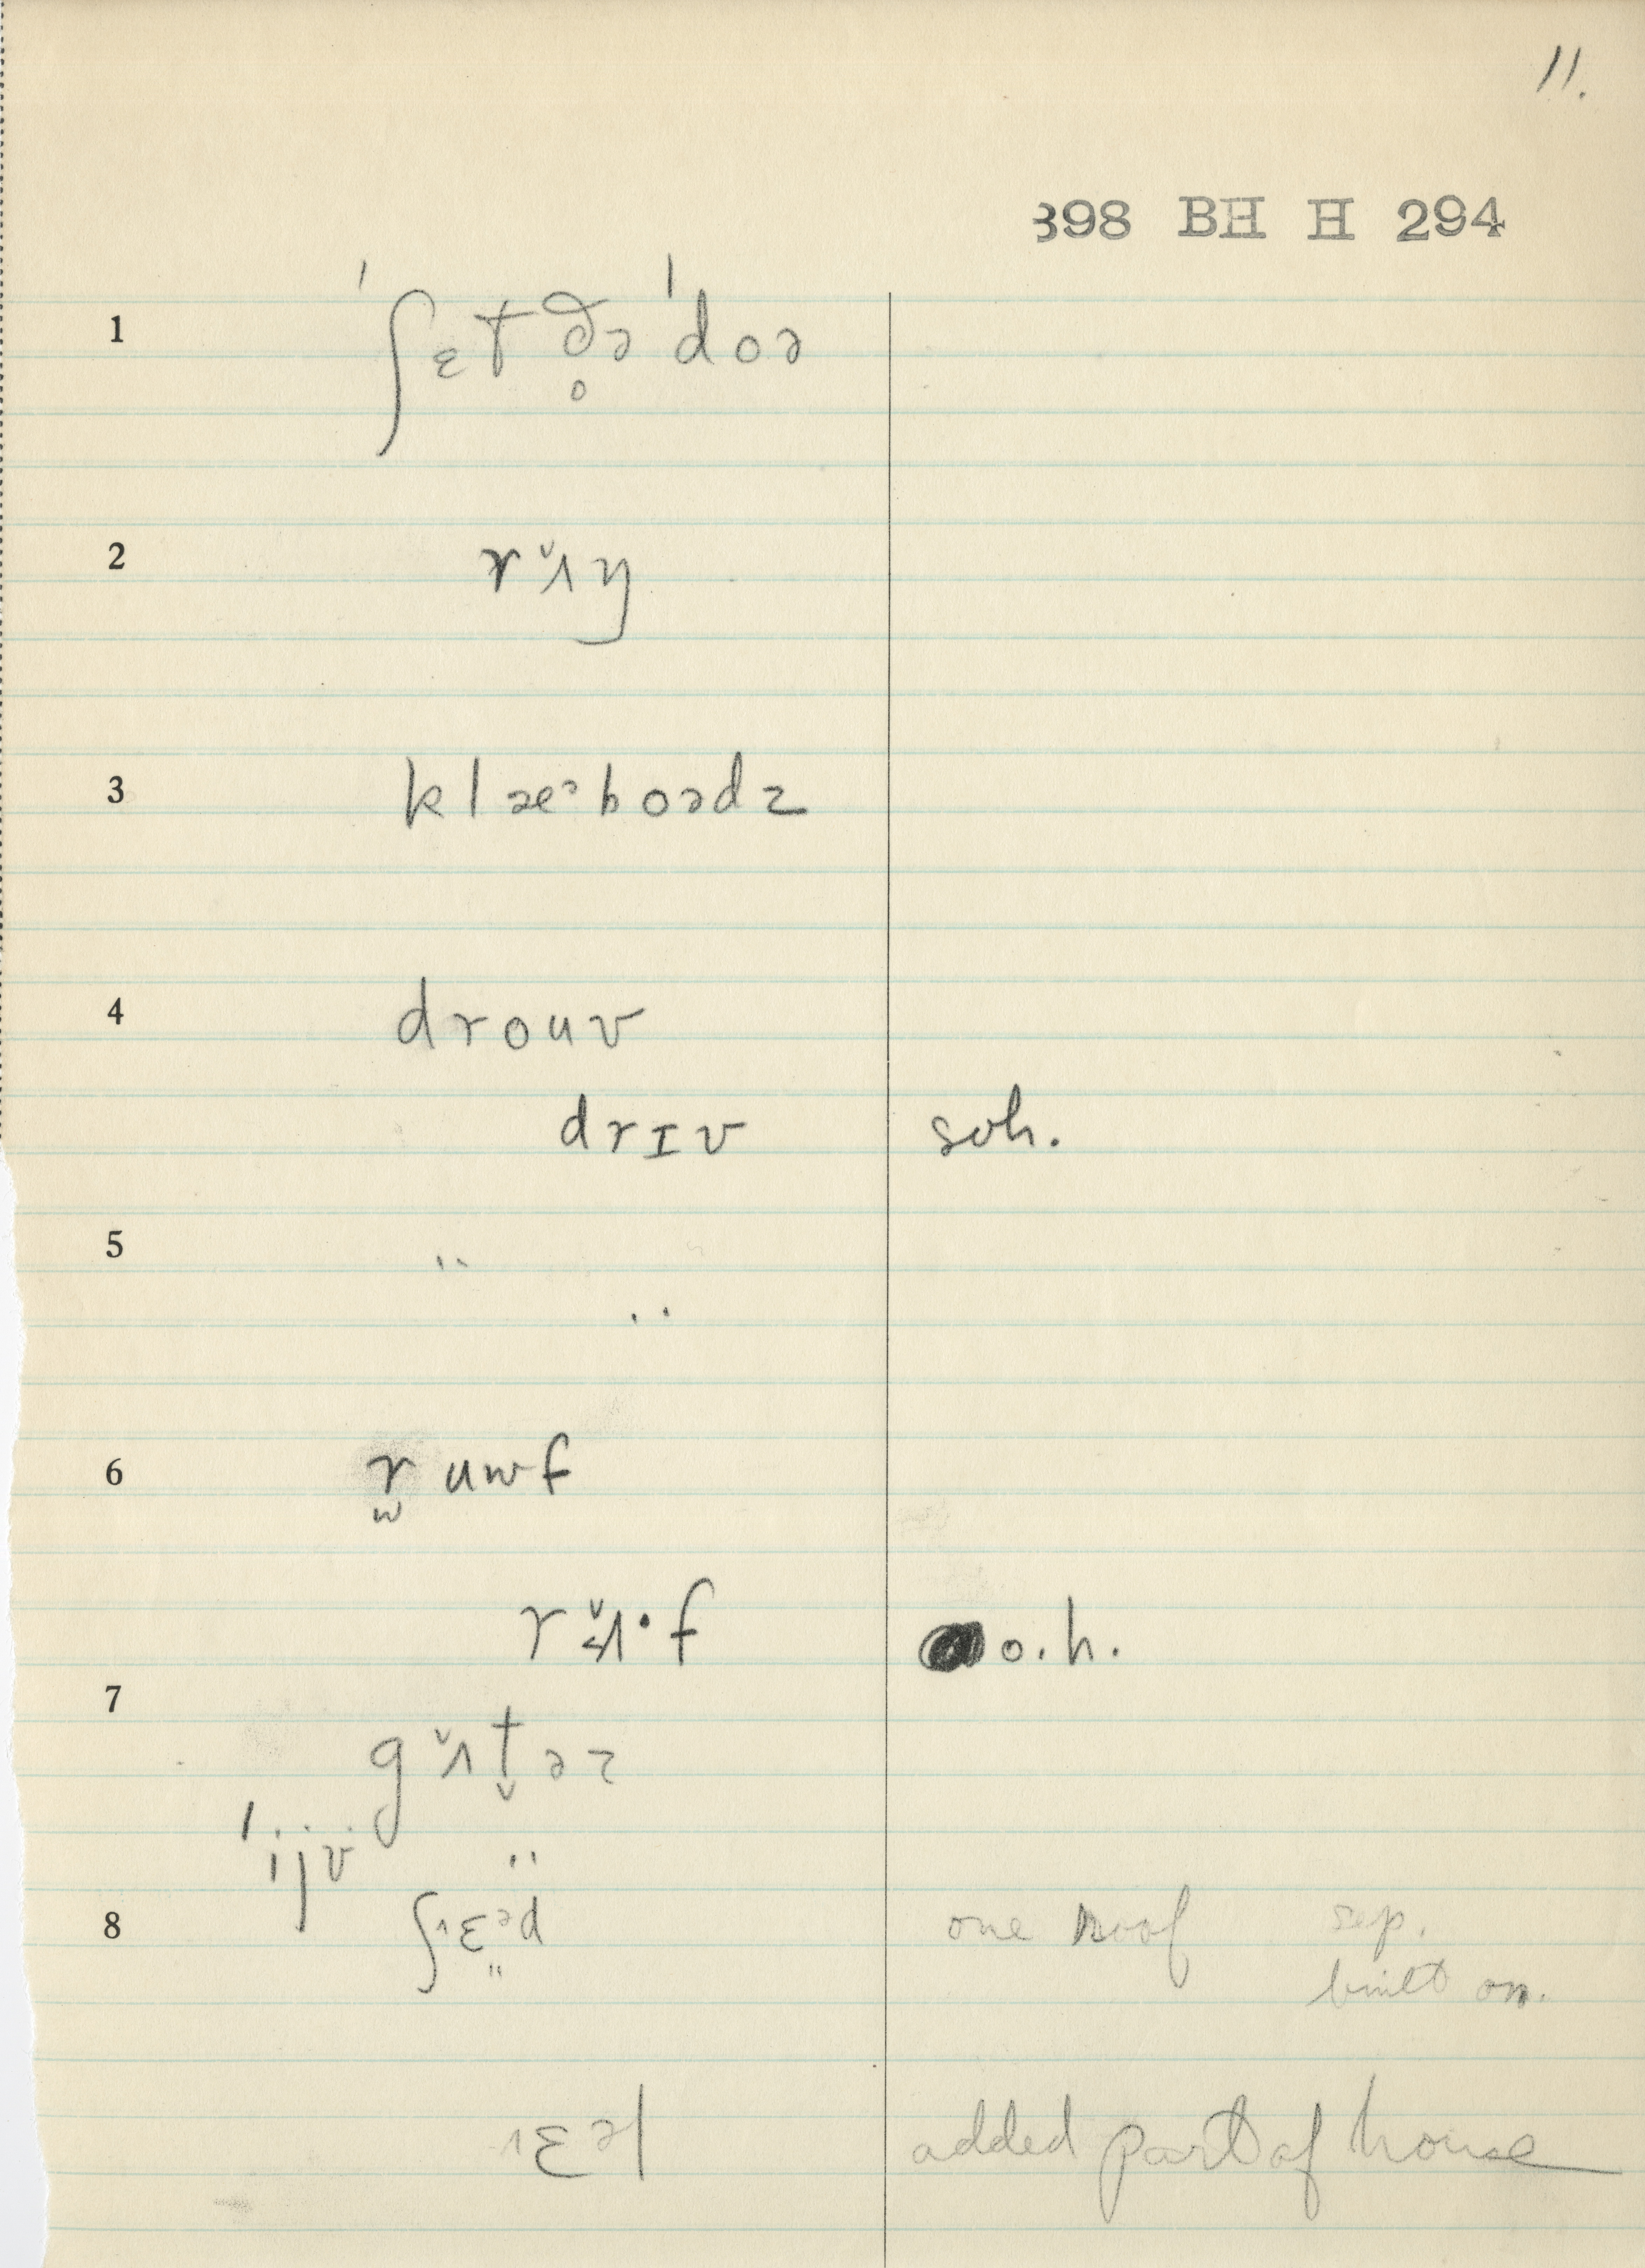 11.
398 BH H 294
1 ˈʃɛt ð̥ə ˈdoə
2 r ˇʌ y
3 klæᵊboədz
4 drouv
drɪv soh.
5 " "
6 r̫ uwf
r ˇʌ·f o.h.
7
g ˇʌt̬əz
ˈijv "
8 ʃ ˈɛ̤ᵊd one roof sep.
built on.
ɛəl added part of house